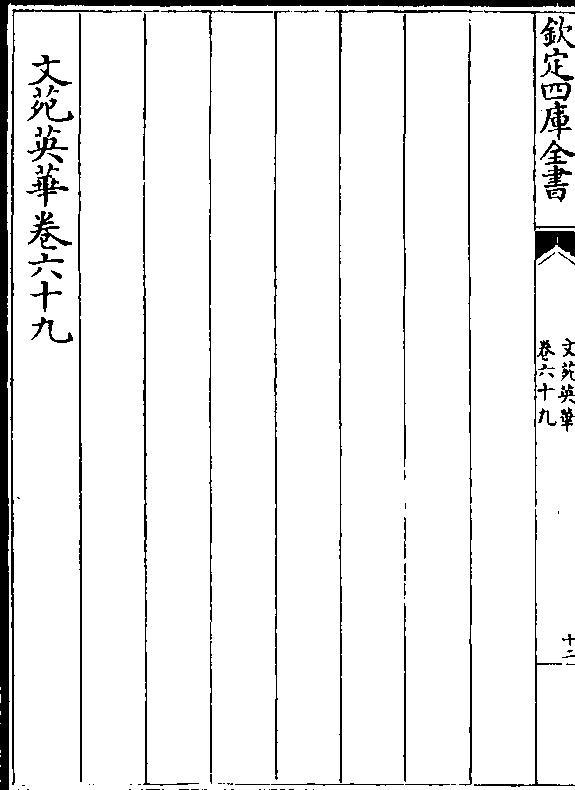 欽定四庫全書
文苑英華
卷六十九
十二
文苑英華卷六十九